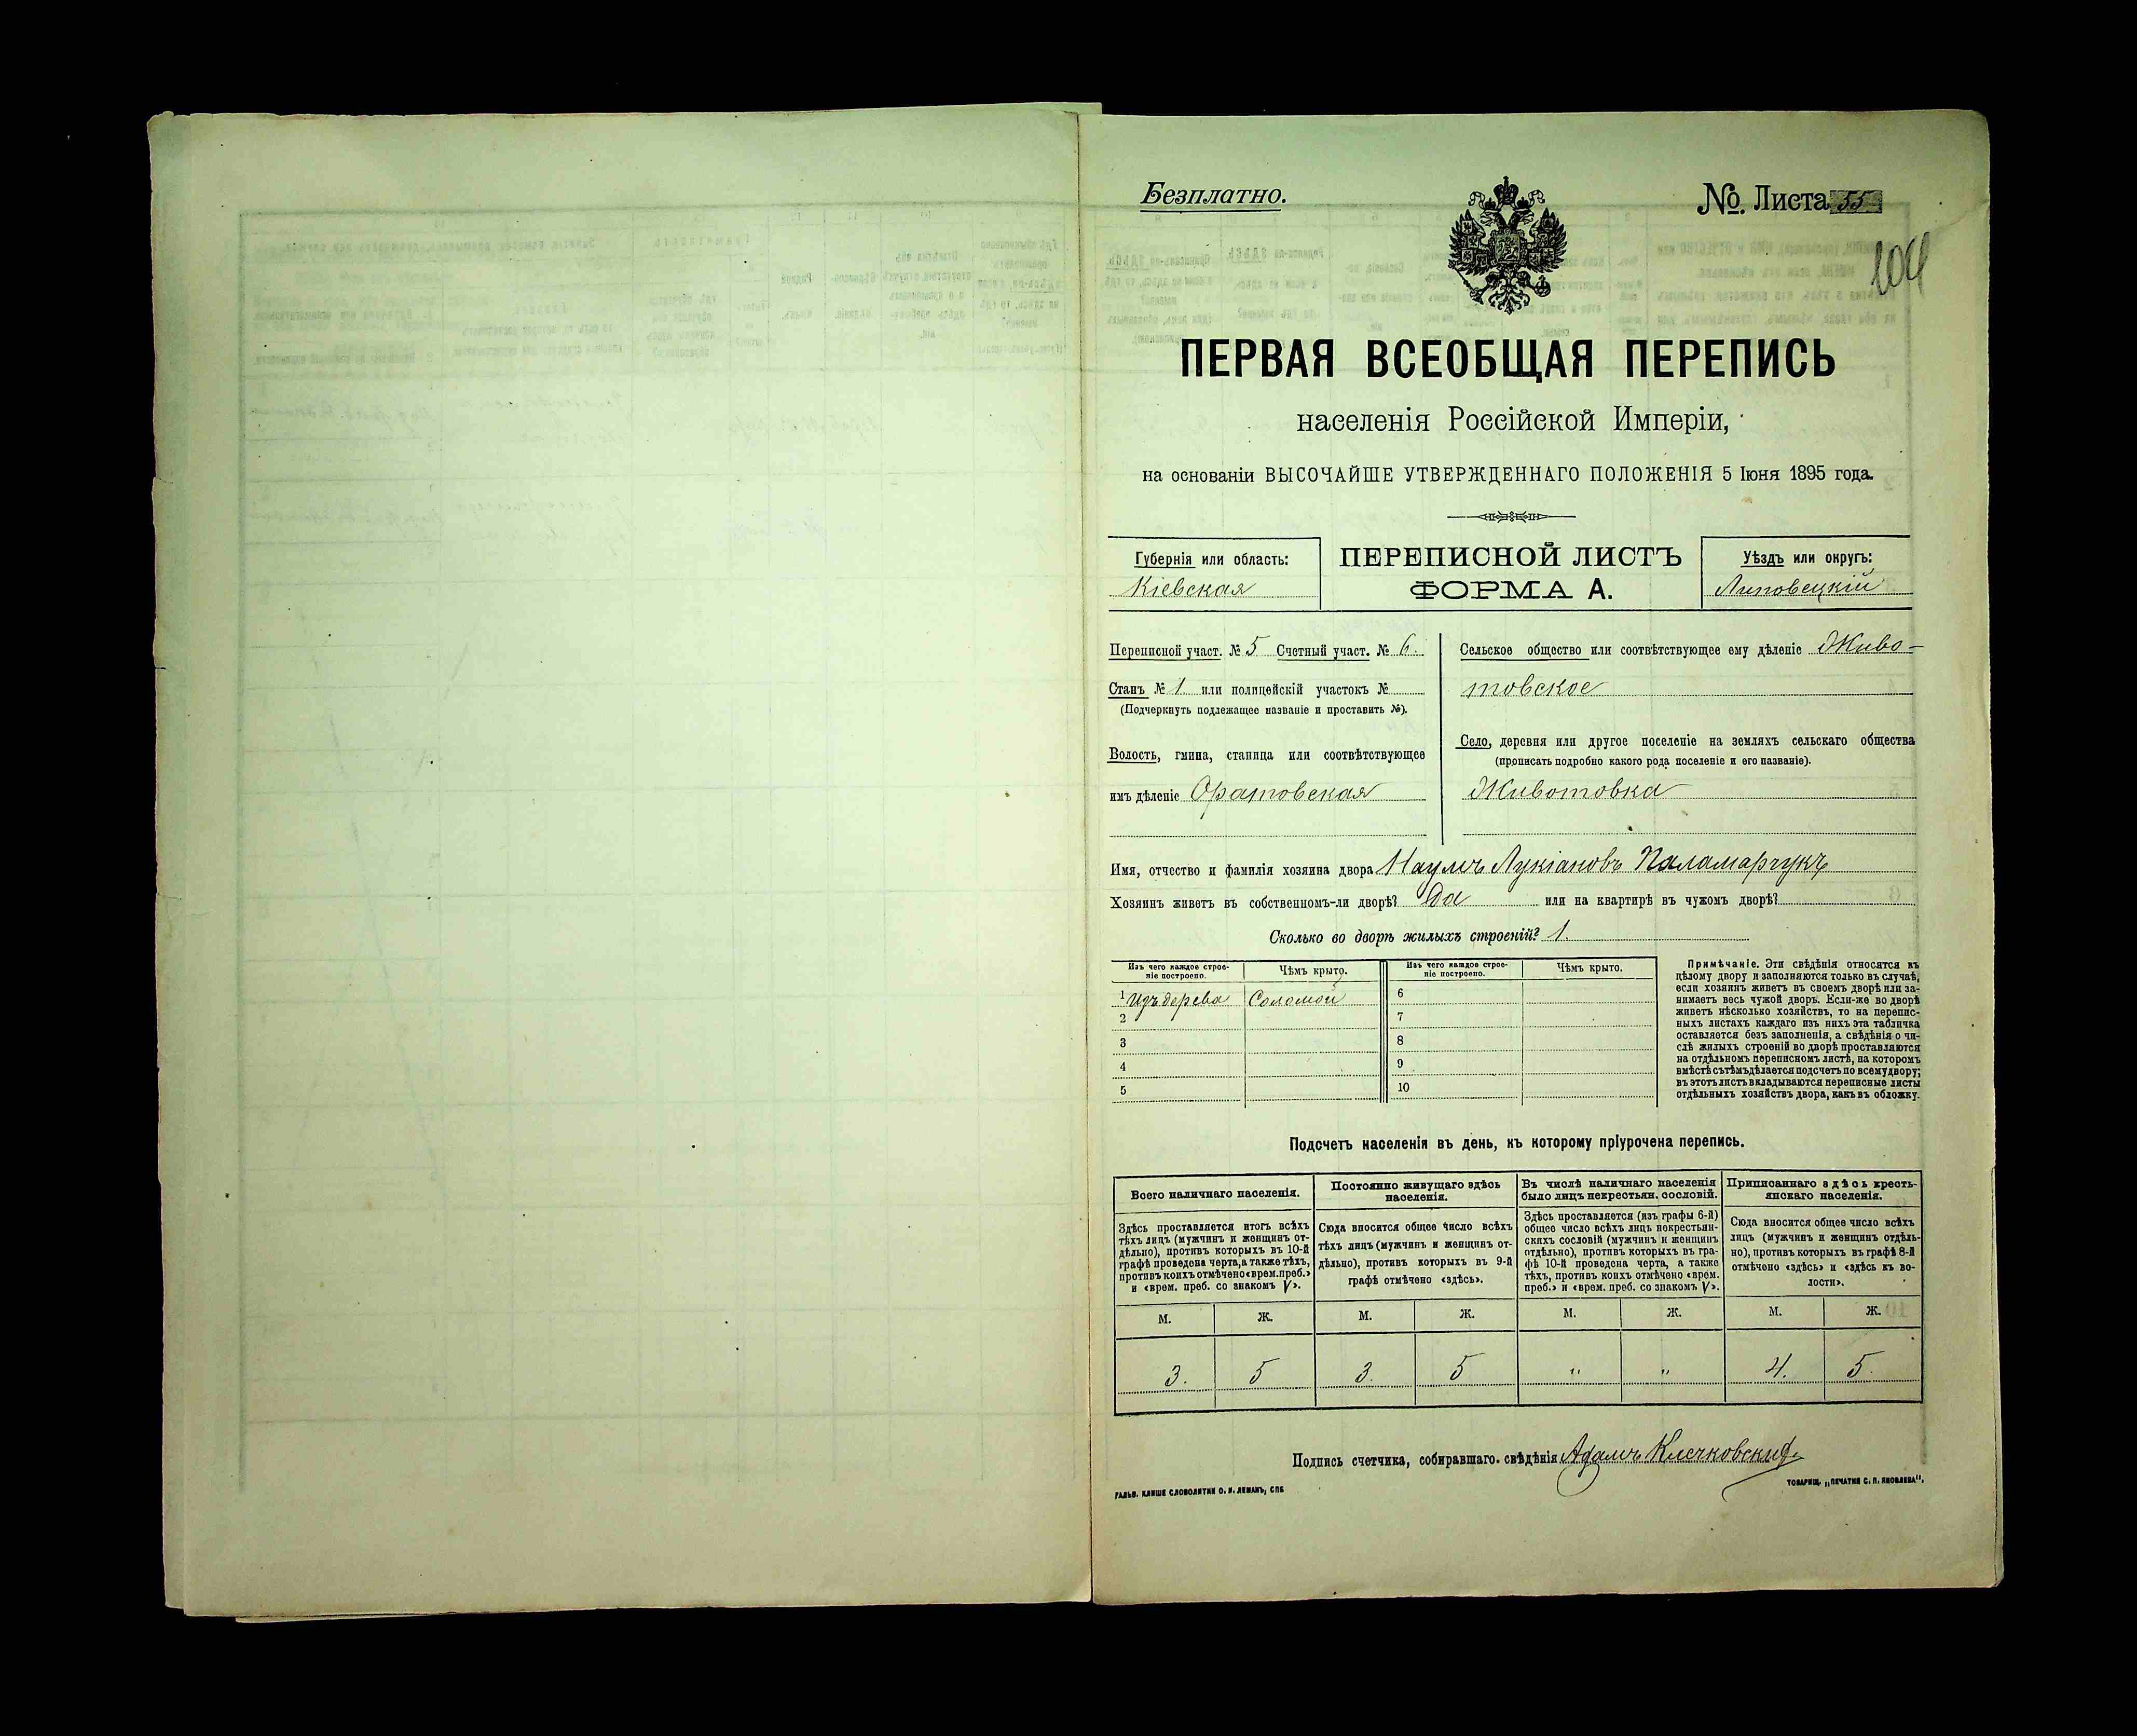 Безплатно.
№. Листа 55
104
ПЕРВАЯ ВСЕОБЩАЯ ПЕРЕПИСЬ
населенія Россійской Имперіи,
на основаніи ВЫСОЧАЙШЕ УТВЕРЖДЕННАГО ПОЛОЖЕНІЯ 5 Іюня 1895 года.
Губернія или область:
Кіевская
ПЕРЕПИСНОЙ ЛИСТЪ
ФОРМА А.
Уѣздъ или округъ:
Липовецкій
Переписной участ. № 5 Счетный участ. № 6.
Станъ № 1 или полицейскій участокъ №
(Подчеркнуть подлежащее названіе и проставить №).
Волость, гмина, станица или соотвѣтствующее
имъ дѣленіе Оратовская
Сельское общество или соотвѣтствующее ему дѣленіе Живо-
товское
Село, деревня или другое поселеніе на земляхъ сельскаго общества
(прописать подробно какого рода поселеніе и его названіе).
Животовка
Имя, отчество и фамилія хозяина двора Наумъ Лукіановъ Паламарчукъ
Хозяинъ живетъ въ собственномъ-ли дворѣ? Да или на квартирѣ въ чужомъ дворѣ?
Сколько во дворѣ жилыхъ строеній? 1.
Изъ чего каждое строе-
ніе построено.
Чѣмъ крыто.
Изъ чего каждое строе-
ніе построено.
Чѣмъ крыто.
1 Изъ дерева Соломой 6
2 7
3 8
4 9
5 10
Примѣчаніе. Эти свѣдѣнія относятся къ
цѣлому двору и заполняются только въ случаѣ,
если хозяинъ живетъ въ своемъ дворѣ или за-
нимаетъ весь чужой дворъ. Если-же во дворѣ
живетъ нѣсколько хозяйствъ, то на перепис-
ныхъ листахъ каждаго изъ нихъ эта табличка
оставляется безъ заполненія, а свѣдѣнія о чи-
слѣ жилыхъ строеній во дворѣ проставляются
на отдѣльномъ переписномъ листѣ, на которомъ
вмѣстѣ сътѣмъ дѣлается подсчетъ по всему двору;
въ этотъ листъ вкладываются переписные листы
отдѣльныхъ хозяйствъ двора, какъ въ обложку.
Подсчетъ населенія въ день, къ которому пріурочена перепись.
Всего наличнаго населенія.
Здѣсь проставляется итогъ всѣхъ
тѣхъ лицъ (мужчинъ и женщинъ от-
дѣльно), противъ которыхъ въ 10-й
графѣ проведена черта, а также тѣхъ,
противъ коихъ отмѣчено «врем. преб.»
и «врем. преб. со знакомъ V».
Постоянно живущаго здѣсь
населенія.
Сюда вносится общее число всѣхъ
тѣхъ лицъ (мужчинъ и женщинъ от-
дѣльно), противъ которыхъ въ 9-й
графѣ отмѣчено «здѣсь».
Въ числѣ наличнаго населенія
было лицъ некрестьян. сословій.
Здѣсь проставляется (изъ графы 6-й)
общее число всѣхъ лицъ некрестьян-
скихъ сословій (мужчинъ и женщинъ
отдѣльно), противъ которыхъ въ гра-
фѣ 10-й проведена черта, а также
тѣхъ, противъ коихъ отмѣчено «врем.
преб.» и «врем. преб. со знакомъ V».
Приписаннаго здѣсь кресть-
янскаго населенія.
Сюда вносится общее число всѣхъ
лицъ (мужчинъ и женщинъ отдѣль-
но), противъ которыхъ въ графѣ 8-й
отмѣчено «здѣсь» и «здѣсь къ во-
лости».
М. Ж. М. Ж. М. Ж. М. Ж.
3. 5 3. 5 " " 4. 5.
Подпись счетчика, собиравшаго свѣдѣнія Адамъ Клечковскій
ГАЛЬВ. КЛИШЕ СЛОВОЛИТНИ О. И. ЛЕМАНЪ, СПБ
ТОВАРИЩ. „ПЕЧАТНЯ С. П. ЯКОВЛЕВА“.